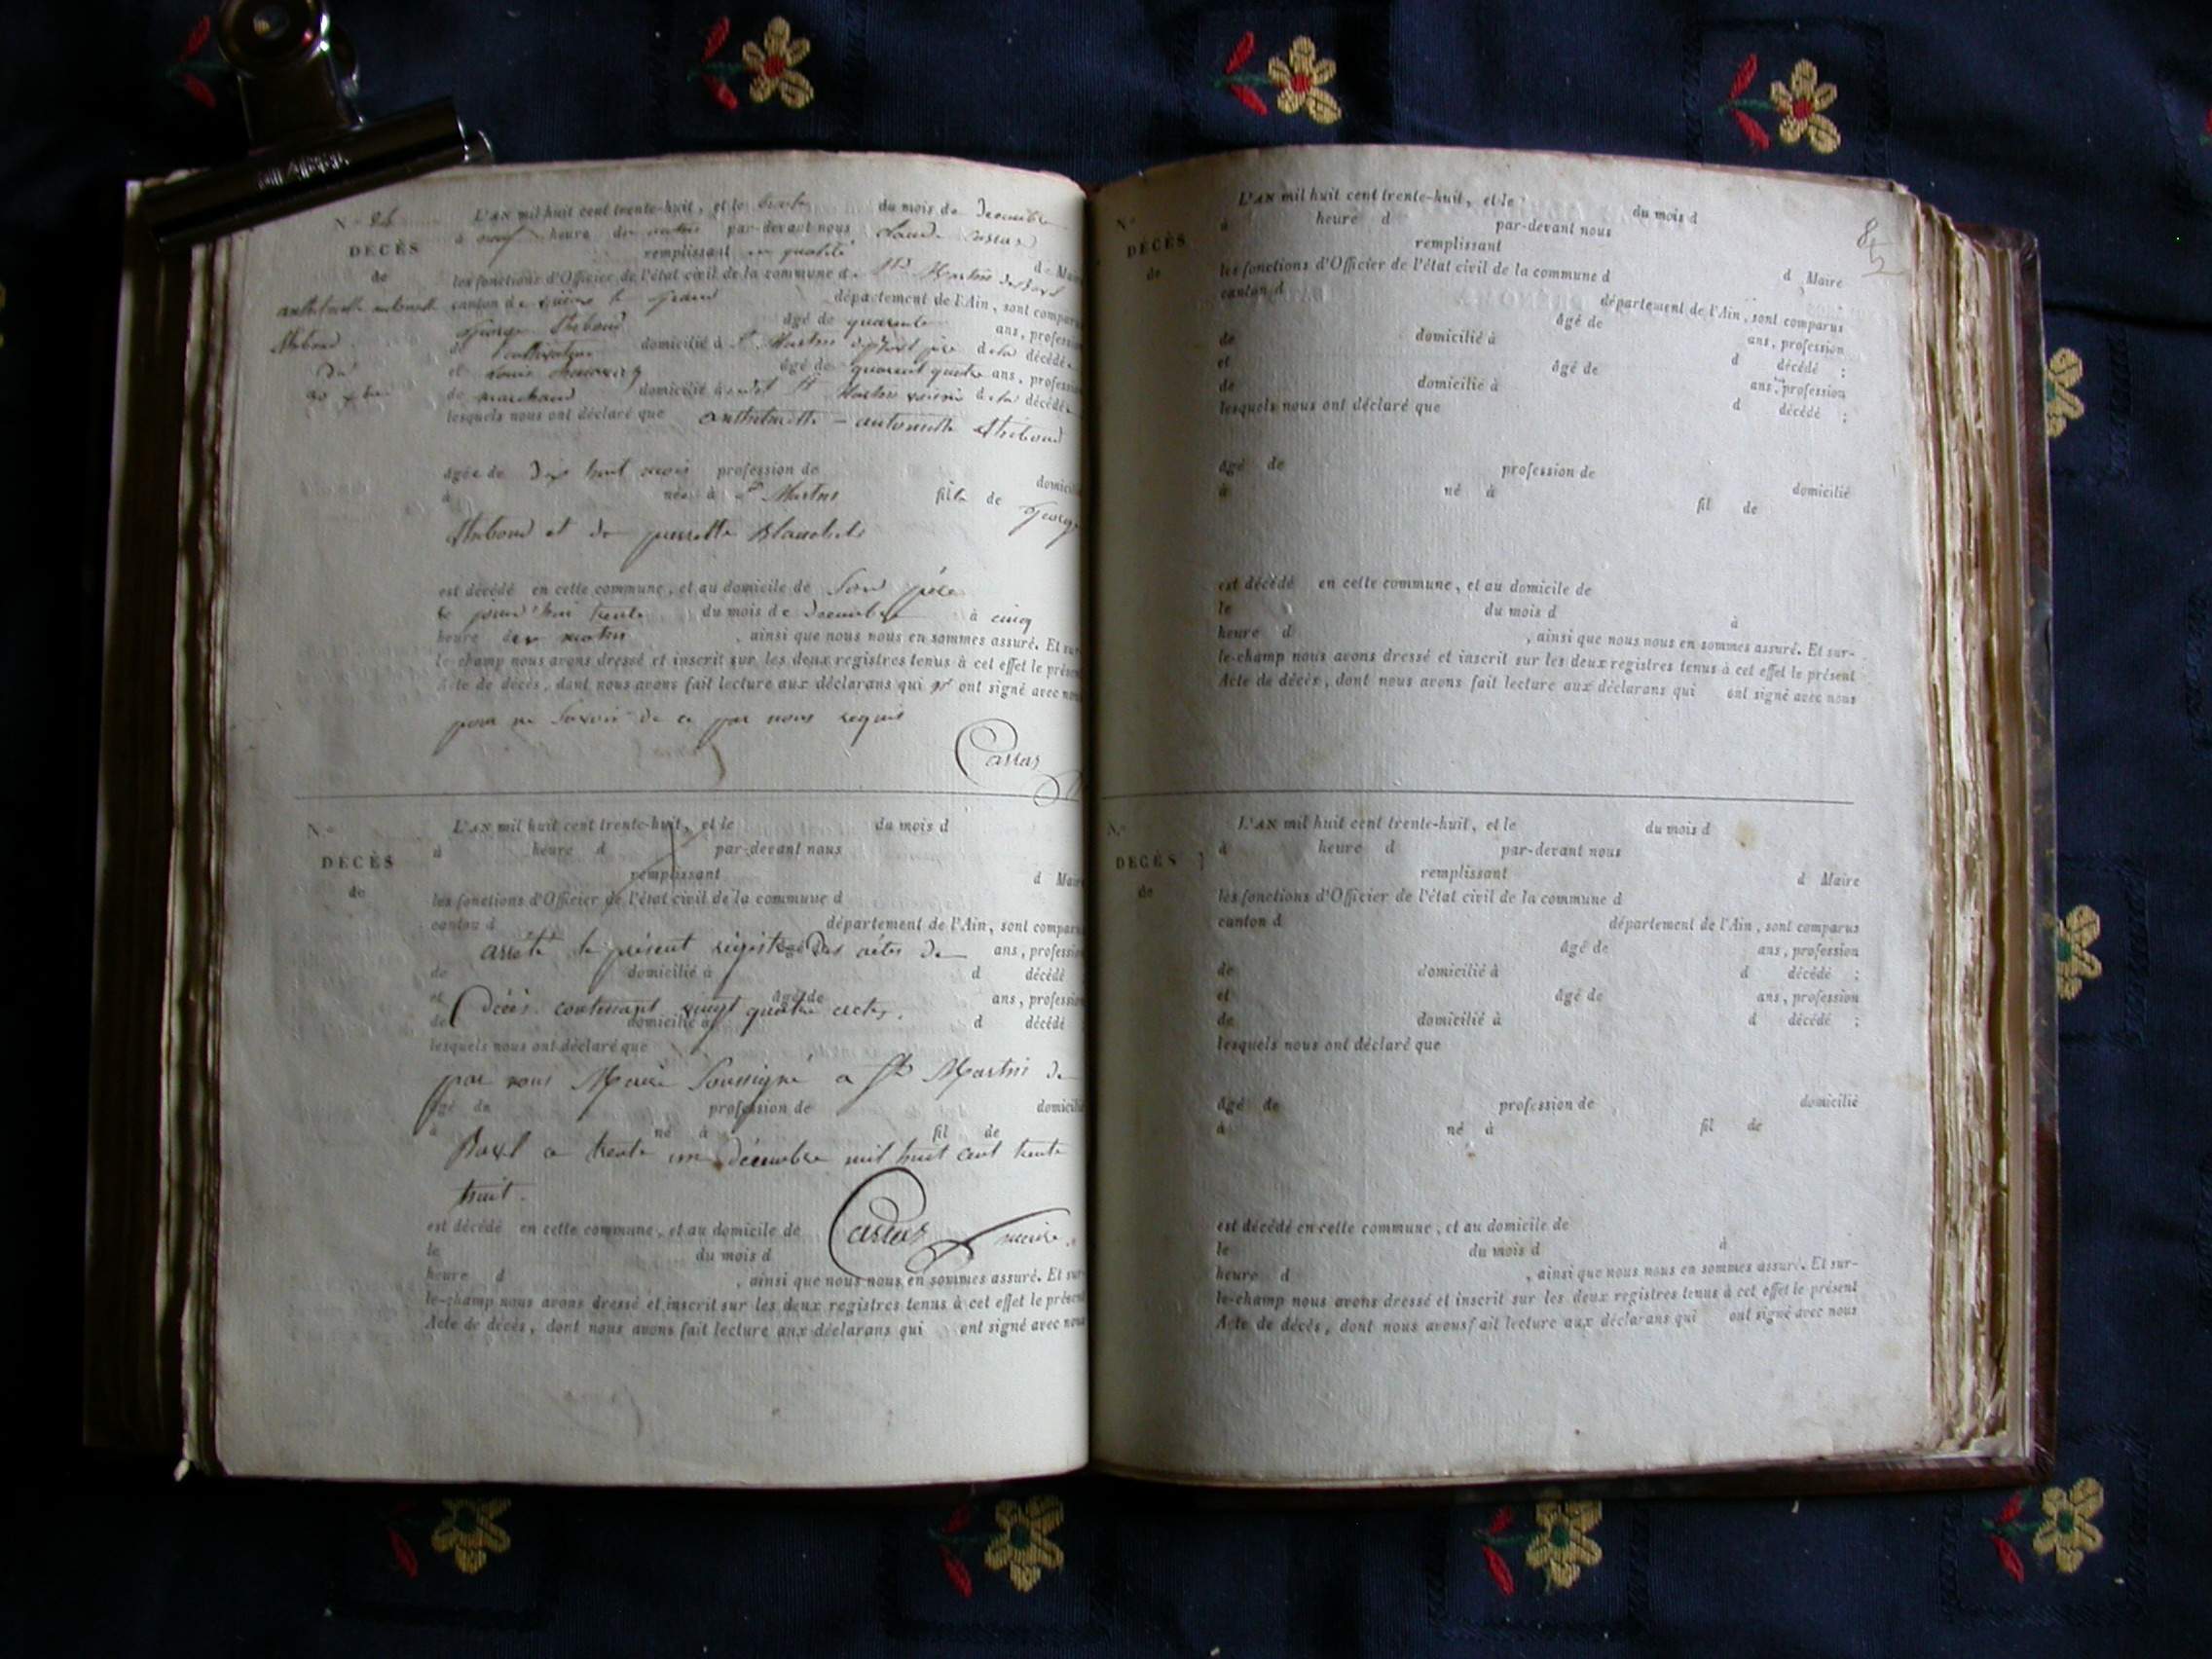 N.° 24
DÉCÈS
de
anthelmette antoinette
thiboud
du
30 xbre
L'AN mil huit cent trente-huit, et le trente du mois de Decembre
à neuf heure du matin par-devant nous Claude
remplissant en qualité de Maire
les fonctions d'Officier de l'état civil de la commune de St Martin
canton de département de l'Ain, sont comparus
George thiboud âgé de quarante ans, profession
de cultivateur domicilié à St Martin père de la décédée
et Louis âgé de quarent quatre ans, profession
de marchand domicilié à St Martin voisin de la décédée
lesquels nous ont déclaré que anthelmette – antoinette thiboud
âgée de Dix huit mois profession de domicilié
à née à St Martin fille de George
thiboud et de pierrette
est décédé en cette commune, et au domicile de Son père
le jourd'hui trente du mois de Decembre à cinq
heure du matin , ainsi que nous nous en sommes assuré. Et sur-
le-champ nous avons dressé et inscrit sur les deux registres tenus à cet effet le présent
Acte de décès, dont nous avons fait lecture aux déclarans qui n' ont signé avec nous
pour ne Savoir de ce par nous requis
N.°
DÉCÈS
de
L'AN mil huit cent trente-huit, et le du mois d
à heure d par-devant nous
remplissant d Maire
les fonctions d'Officier de l'état civil de la commune d
canton d département de l'Ain, sont comparus
arrêté le présent registre des actes de
ans, profession
de domicilié à d décédé
et âgé de ans, profession
Décès contenant vingt quatre actes.
de domicilié à d décédé ;
lesquels nous ont déclaré que
par nous Maire Soussigné a St Martin de
âgé de profession de domicilié
à né à fil de
a trente un décembre mil huit cent trente
huit.
est décédé en cette commune, et au domicile de
maire.
le du mois d
heure d , ainsi que nous nous en sommes assuré. Et sur-
le-champ nous avons dressé et inscrit sur les deux registres tenus à cet effet le présent
Acte de décès, dont nous avons fait lecture aux déclarans qui ont signé avec nous
85
N.°
DÉCÈS
de
L'AN mil huit cent trente-huit, et le du mois d
à heure d par-devant nous
remplissant d Maire
les fonctions d'Officier de l'état civil de la commune d
canton d département de l'Ain, sont comparus
âgé de ans, profession
de domicilié à d décédé ;
et âgé de ans, profession
de domicilié à d décédé ;
lesquels nous ont déclaré que
âgé de profession de domicilié
à né à fil de
est décédé en cette commune, et au domicile de
le du mois d à
heure d , ainsi que nous nous en sommes assuré. Et sur-
le-champ nous avons dressé et inscrit sur les deux registres tenus à cet effet le présent
Acte de décès, dont nous avons fait lecture aux déclarans qui ont signé avec nous
N.°
DÉCÈS
de
L'AN mil huit cent trente-huit, et le du mois d
à heure d par-devant nous
remplissant d Maire
les fonctions d'Officier de l'état civil de la commune d
canton d département de l'Ain, sont comparus
âgé de ans, profession
de domicilié à d décédé ;
et âgé de ans, profession
de domicilié à d décédé ;
lesquels nous ont déclaré que
âgé de profession de domicilié
à né à fil de
est décédé en cette commune, et au domicile de
le du mois d à
heure d , ainsi que nous nous en sommes assuré. Et sur-
le-champ nous avons dressé et inscrit sur les deux registres tenus à cet effet le présent
Acte de décès, dont nous avons fait lecture aux déclarans qui ont signé avec nous